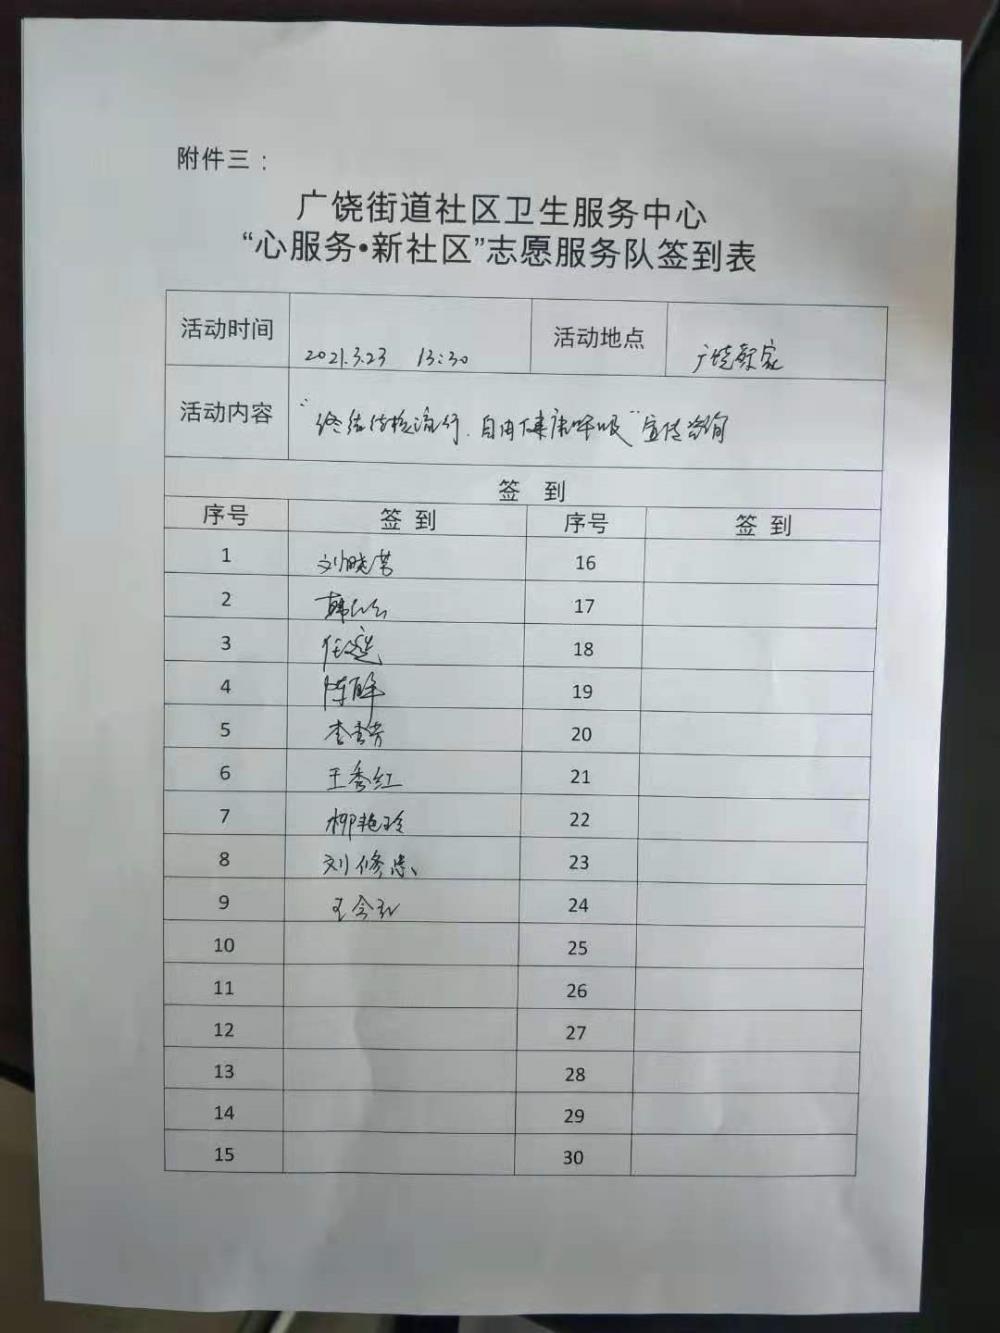 附件三：
广饶街道社区卫生服务中心
“心服务•新社区”志愿服务队签到表
活动时间 2021.3.23 13:30 活动地点 广饶颐家
活动内容 “终结结核流行.自由健康呼吸”宣传咨询
签 到
序号 签 到 序号 签 到
1 刘晓芳 16
2 韩 17
3 任 18
4 陈 19
5 李秀芳 20
6 王秀红 21
7 柳艳玲 22
8 刘修忠 23
9 王会 24
10 25
11 26
12 27
13 28
14 29
15 30